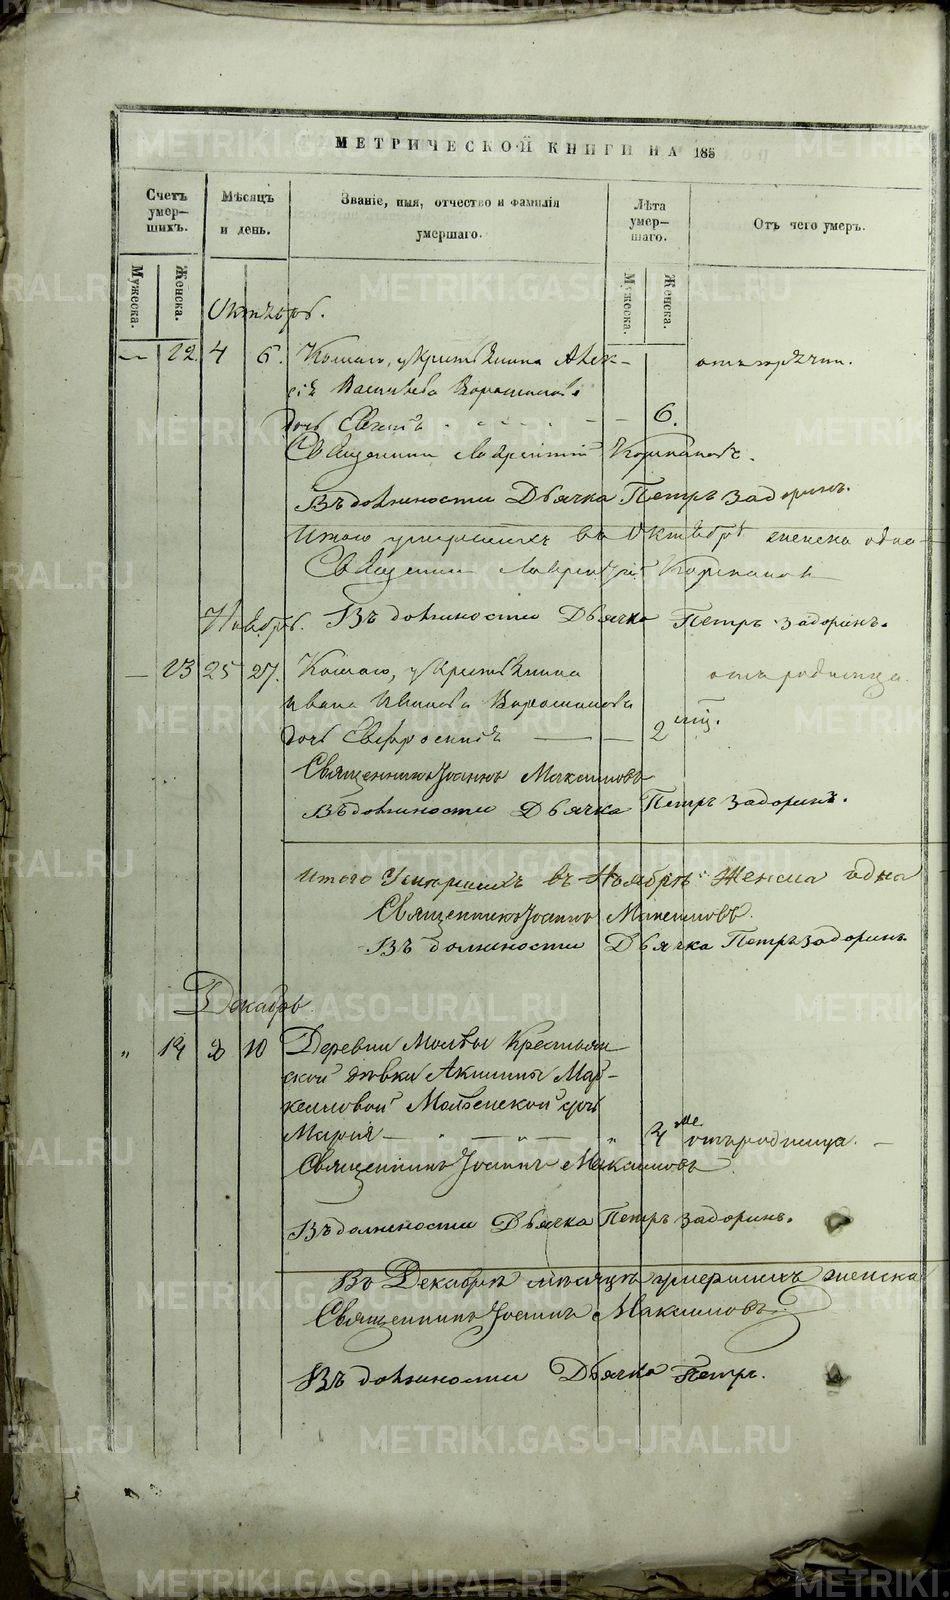 МЕТРИЧЕСКОЙ КНИГИ НА 185
Счетъ умер-шихъ.
Мѣсяцъ и день.
Званіе, имя, отчество и фамилія умершаго.
Лѣта умер-шаго.
Отъ чего умеръ.
Мужеска.
Женска.
Мужеска.
Женска.
Октябрь.
— 12 4 6. крестьянина Алек-
сѣя Васильева
дочь 6.
Священникъ Лаврентій
Въ должности Дьячка Петръ Задоринъ.
Итого умершихъ въ Октябрѣ женска одна
Священникъ Лаврентій
Ноябрь. Въ должности Дьячка Петръ Задоринъ.
— 13 25 27. крестьянина отъ родимца.
Ивана Иванова
дочь Евфросинія — — 2
Священникъ Іоаннъ Максимовъ
Въ должности Дьячка Петръ Задоринъ.
Итого Умершихъ въ Ноябрѣ Женска одна
Священникъ Іоаннъ Максимовъ.
Въ должности Дьячка Петръ Задоринъ.
Декабрь.
" 14 8 10 Деревни Молвы Крестьян
ской дѣвки Акилины Мар-
келловой дочь
Марія — " — " — " отъ родимца. —
Священникъ Іоаннъ Максимовъ.
Въ должности Дьячка Петръ Задоринъ.
Въ Декабрѣ мѣсяцѣ умершихъ женска
Священникъ Іоаннъ Максимовъ.
Въ должности Дьячка Петръ.
METRIKI.GASO-URAL.RU